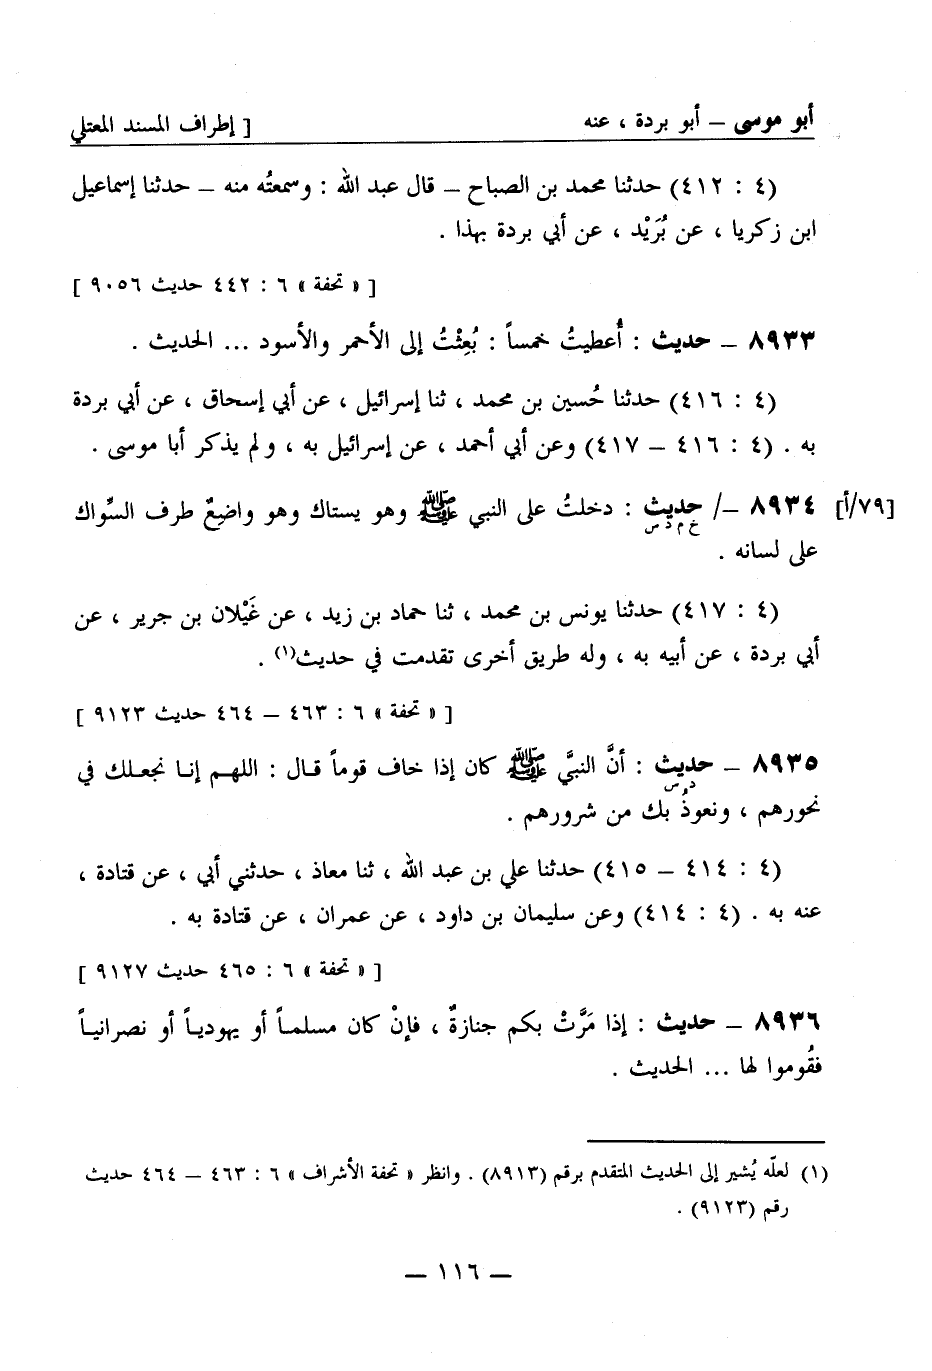 أبو موسى – أبو بردة ، عنه
[ إطراف المسند المعتلي
(٤ : ٤١٢) حدثنا محمد بن الصباح – قال عبد الله : وسمعتُه منه – حدثنا إسماعيل
ابن زكريا ، عن بُرَيْد ، عن أبي بردة بهذا .
[ « تحفة » ٦ : ٤٤٢ حديث ٩٠٥٦ ]
٨٩٣٣ – حديث : أُعطيتُ خمساً : بُعِثْتُ إلى الأحمر والأسود ... الحديث .
(٤ : ٤١٦) حدثنا حُسين بن محمد ، ثنا إسرائيل ، عن أبي إسحاق ، عن أبي بردة
به . (٤ : ٤١٦ – ٤١٧) وعن أبي أحمد ، عن إسرائيل به ، ولم يذكر أبا موسى .
[٧٩/أ] ٨٩٣٤ –/ حديث : دخلتُ على النبي ﷺ وهو يستاك وهو واضِعٌ طرف السِّواك
خ م د س
على لسانه .
(٤ : ٤١٧) حدثنا يونس بن محمد ، ثنا حماد بن زيد ، عن غَيْلان بن جرير ، عن
أبي بردة ، عن أبيه به ، وله طريق أخرى تقدمت في حديث(١) .
[ « تحفة » ٦ : ٤٦٣ – ٤٦٤ حديث ٩١٢٣ ]
٨٩٣٥ – حديث : أنَّ النبيَّ ﷺ كان إذا خاف قوماً قال : اللهم إنا نجعلك في
د س
نحورهم ، ونعوذُ بك من شرورهم .
(٤ : ٤١٤ – ٤١٥) حدثنا علي بن عبد الله ، ثنا معاذ ، حدثني أبي ، عن قتادة ،
عنه به . (٤ : ٤١٤) وعن سليمان بن داود ، عن عمران ، عن قتادة به .
[ « تحفة » ٦ : ٤٦٥ حديث ٩١٢٧ ]
٨٩٣٦ – حديث : إذا مَرَّتْ بكم جنازةٌ ، فإنْ كان مسلماً أو يهودياً أو نصرانياً
فقُوموا لها ... الحديث .
(١) لعلّه يُشير إلى الحديث المتقدم برقم (٨٩١٣) . وانظر « تحفة الأشراف » ٦ : ٤٦٣ – ٤٦٤ حديث
رقم (٩١٢٣) .
– ١١٦ –